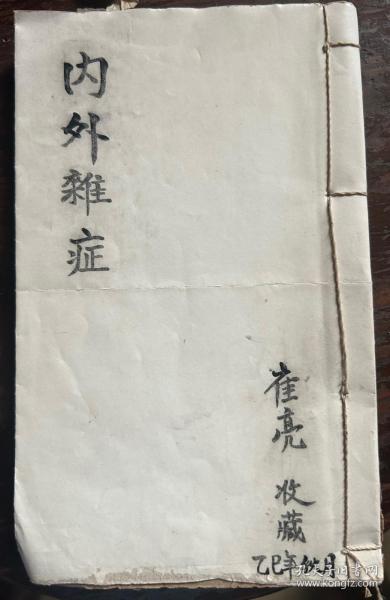 内外雜症
崔亮 收藏
乙巳年
孔夫子旧书网
www.kongfz.com